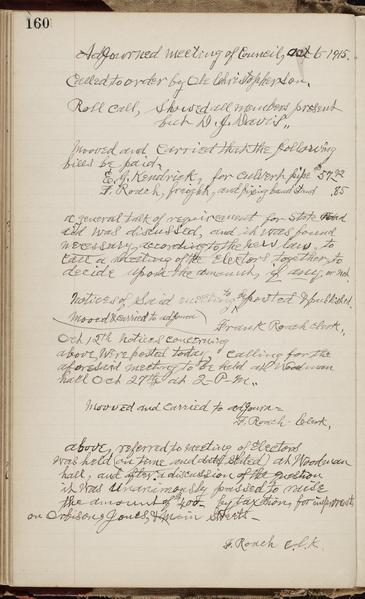 160
Adjourned meeting of Council, Oct 6-1915.
Called to order by Ole Christopherson.
Roll call, showed all members present
but D. J. Davis,,
Mooved and carried that the following
bills be paid,
E. J. Kendrick, for culvert pipe $57.
F. Roach, freight, and fixing band stand .85
a general talk of requirement for State Road
aid was discussed, and it was found
necessary, according to the new law, to
call a meeting of the Electors together, to
decide upon the amount, if any, or not.
Notices of said meeting to be posted & published.
Mooved & carried to adjourn
Frank Roach clerk,,
Oct 12th Notices concerning
above, were posted today, calling for the
aforesaid meeting to be held at Woodman
hall Oct 27th at 2- P.M.,,
Mooved and carried to adjourn-
F. Roach- Clerk,
above, referred to meeting of Electors
was held (on time and date stated) at Woodman
hall, and after a discussion of the question
it was unanimously passed to raise
the amount of $400- by taxation, for improvements,
on Orbison, Jones, & Main Streets-
F. Roach C.L.K.